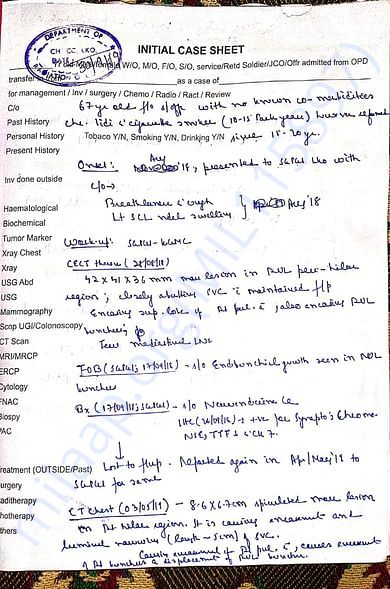 DEPARTMENT OF
CH CC, LKO
INITIAL CASE SHEET
W/O, M/O, F/O, S/O, service/Retd Soldier/JCO/Offr admitted from OPD
transfer as a case of
for management / Inv / surgery / Chemo / Radio / Ract / Review
C/o 67 yr old f/o s/offr with no known co-morbidities
Past History chr. cigarette smoker (10-15 Pack years) however
Personal History Tobacco Y/N, Smoking Y/N, Drinking Y/N since 15-20 yr.
Present History
Onset: Aug '18, presented to SGPGI Lko with
Inv done outside c/o→
Haematological Breathlessness cough
Biochemical Lt SCL neck swelling } Aug '18
Tumor Marker Work-up: SGPGI-KGMC
Xray Chest
Xray CECT thorax
USG Abd 42 x 41 x 36 mm mass lesion in RUL peri-hilar
USG region; closely abutting SVC c maintained f/p
Mammography Encasing sup. lobe of Rt pul. , also encasing RUL
Scop UGI/Colonoscopy bronchus
CT Scan Few mediastinal LNs
MRI/MRCP
ERCP FOB (SGPGI; 17/09/18) - s/o Endobronchial growth seen in RUL
Cytology bronchus
FNAC Bx (17/09/18; SGPGI) - s/o Neuroendocrine Ca
Biospy IHC - +ve for Synapto; Chromo
PAC NSE, TTF1 & CK7.
reatment (OUTSIDE/Past) Lost to f/up. Reported again in Apr/May '19 to
urgery SGPGI for same
aditherapy
hotherapy CT Chest (03/05/19) - 8.6 x 6.7cm spiculated mass lesion
thers on Rt hilar region. It is causing encasement and
luminal narrowing (length ~ 5cm) of SVC.
Causing encasement of Rt pul. , causes encasement
of Rt bronchus & displacement of RUL bronchus.
milaap.org/MIL